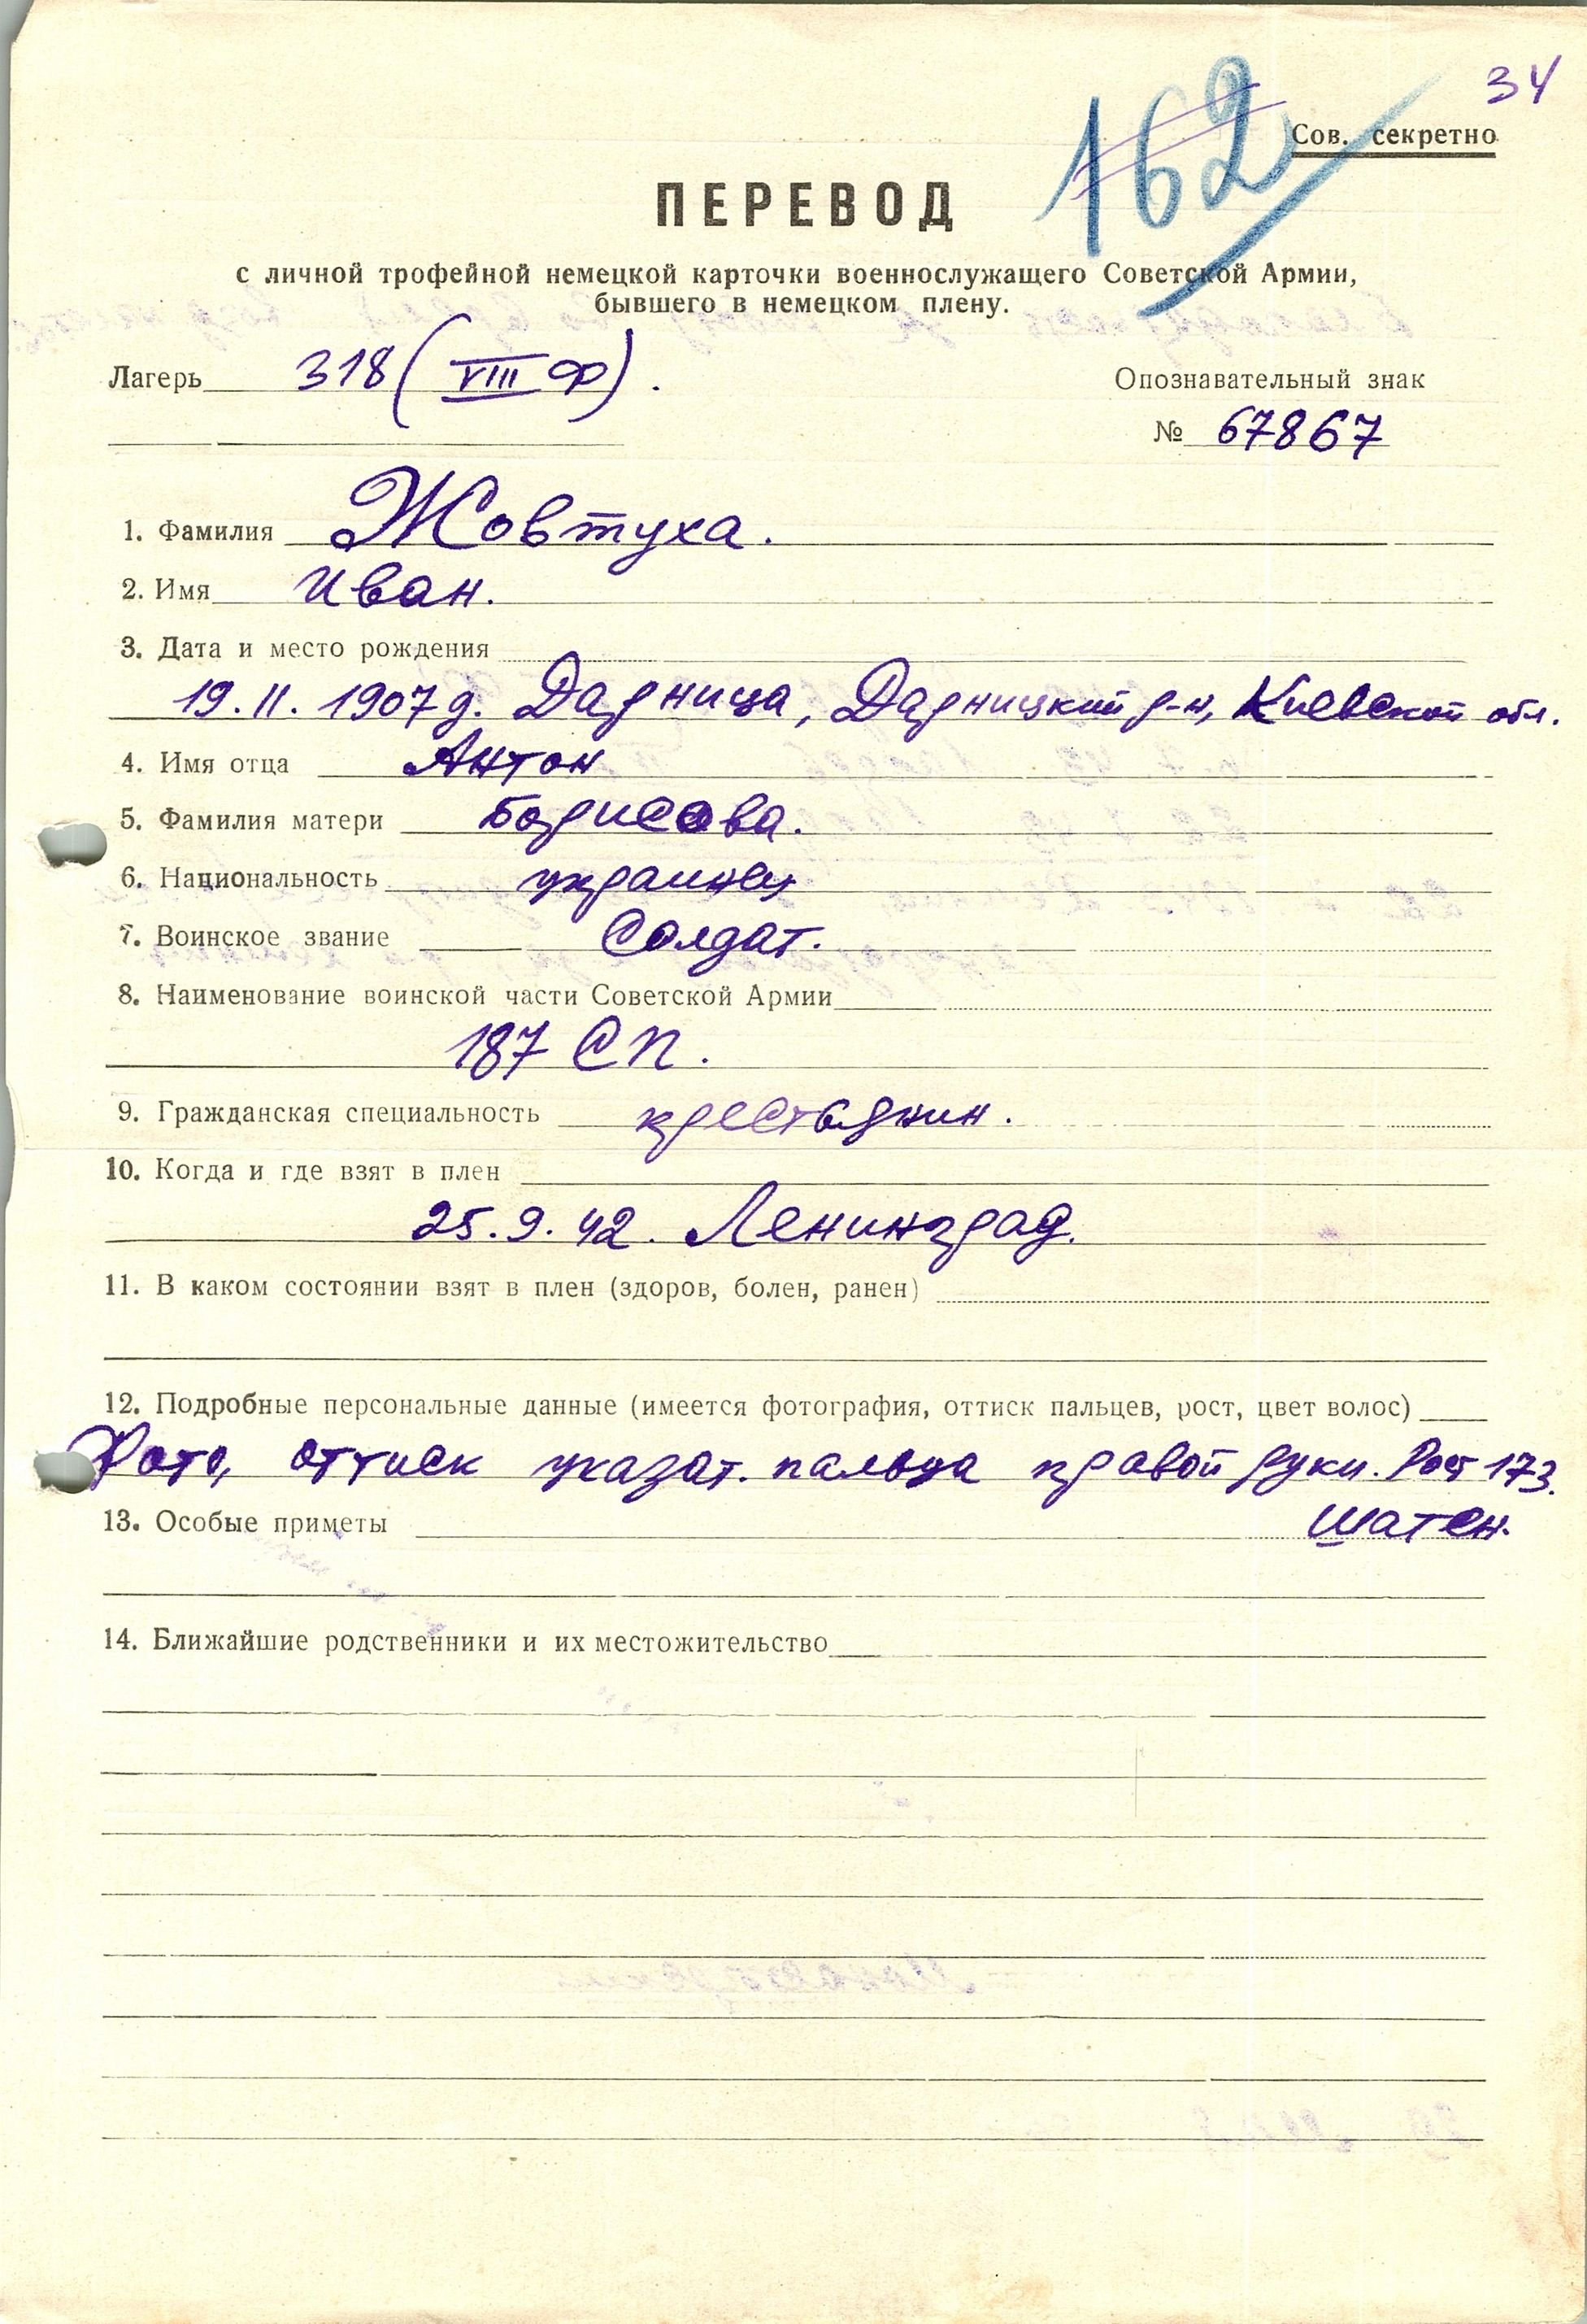 34
162
Сов. секретно
ПЕРЕВОД
с личной трофейной немецкой карточки военнослужащего Советской Армии,
бывшего в немецком плену.
Лагерь 318 (VIII Ф).
Опознавательный знак
№ 67867
1. Фамилия Жовтуха.
2. Имя Иван.
3. Дата и место рождения
19.II. 1907 г. Дарница, Дарницкий р-н, Киевской обл.
4. Имя отца Антон
5. Фамилия матери Борисова.
6. Национальность украинец
7. Воинское звание Солдат.
8. Наименование воинской части Советской Армии
187 СП.
9. Гражданская специальность крестьянин.
10. Когда и где взят в плен
25.9.42. Ленинград.
11. В каком состоянии взят в плен (здоров, болен, ранен)
12. Подробные персональные данные (имеется фотография, оттиск пальцев, рост, цвет волос)
Фото, оттиск указат. пальца правой руки. Рост 173.
13. Особые приметы шатен.
14. Ближайшие родственники и их местожительство